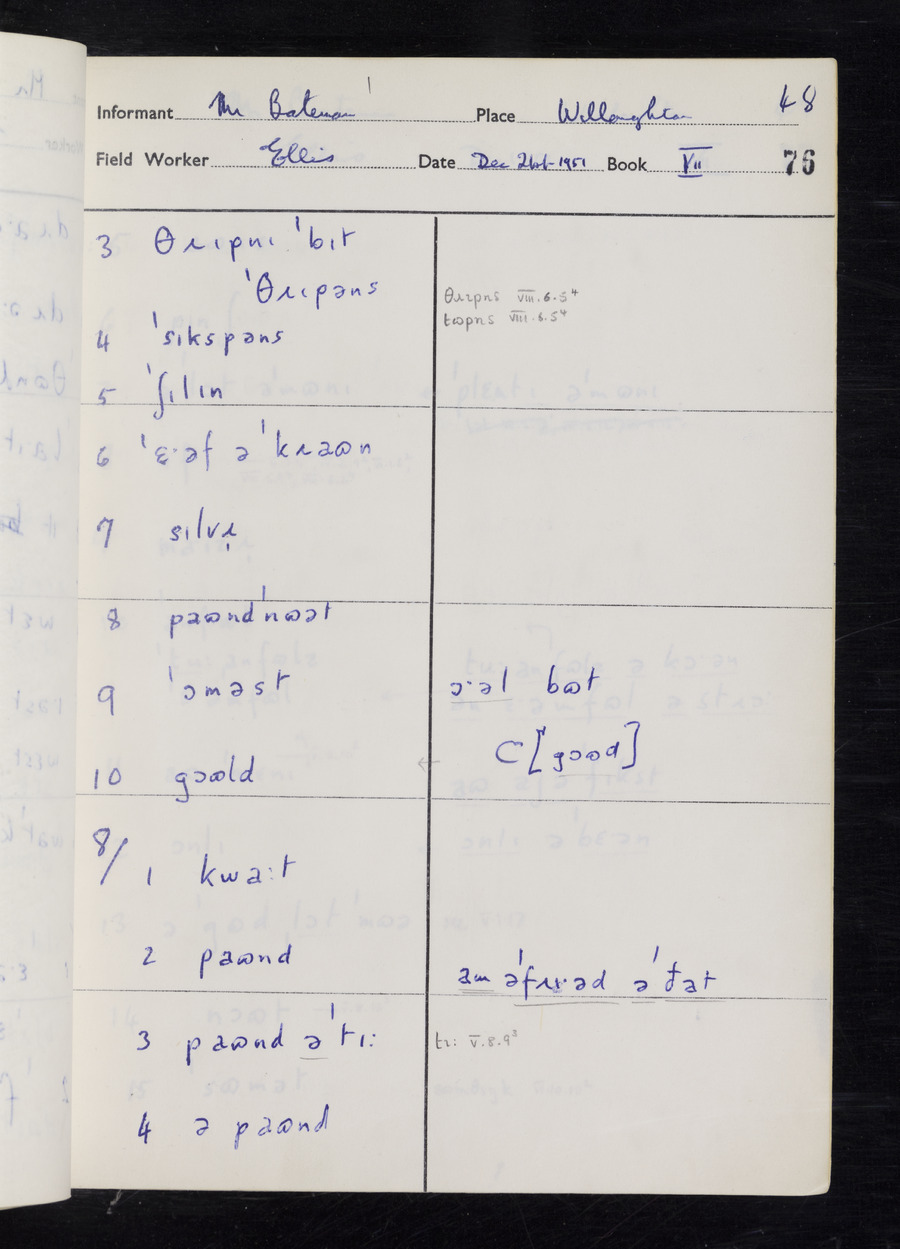 48
Informant Mr Bateman Place Willoughton
Field Worker Ellis Date Dec 21st 1951 Book VII 76
3 θɹɪpnɪ ˈbɪt
ˈθɹɪpəns θɹɪpns VIII.6.5⁴
tɷpns VIII.6.5⁴
4 ˈsɪkspəns
5 ˈʃɪlɪn
6 ˈɛ·əf ə ˈkɹaɷn
7 sɪlvɹ̩
8 paɷndˈnɷət
9 ˈɔməst ɔ·əl bɷt
C[gɔɷd]
10 gɔɷld ←
8/ 1 kwaːt
2 paɷnd am əˈfɹɪəd ə ˈðat
3 paɷnd ə ˈtɪː tɪː V.8.9³
4 ə paɷnd